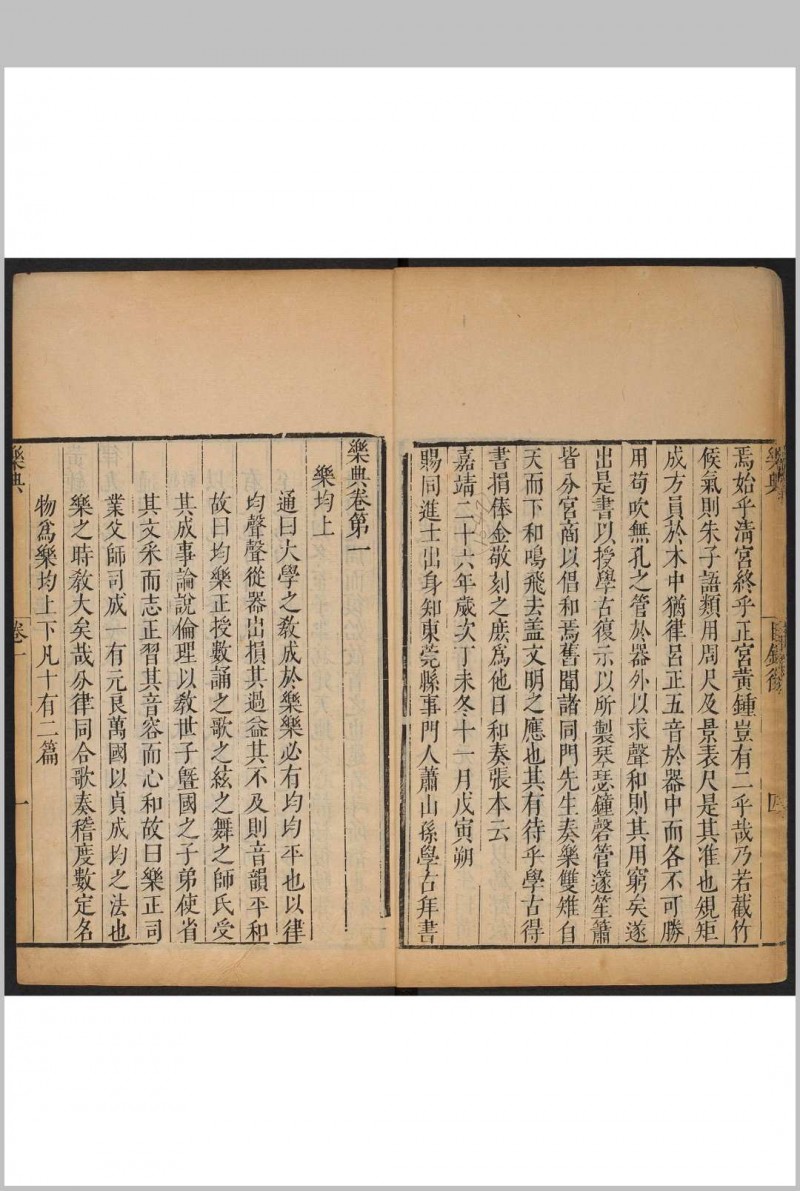 樂典
目錄後
四
焉始乎清宮終乎正宮黃鍾豈有二乎哉乃若截竹
候氣則朱子語類用周尺及景表尺是其准也規矩
成方員於木中猶律呂正五音於器中而各不可勝
用苟吹無孔之管於器外以求聲和則其用窮矣遂
出是書以授學古復示以所製琴瑟鐘磬管籧笙簫
皆分宮商以倡和焉舊聞諸同門先生奏樂雙雉自
天而下和鳴飛去盖文明之應也其有待乎學古得
書捐俸金敬刻之庻爲他日和奏張本云
嘉靖二十六年歲次丁未冬十一月戊寅朔
賜同進士出身知東莞縣事門人蕭山孫學古拜書
樂典卷第一
樂均上
通曰大學之教成於樂樂必有均均平也以律
均聲聲從器出損其過益其不及則音韻平和
故曰均樂正授數誦之歌之絃之舞之師氏受
其成事論說倫理以教世子曁國之子弟使省
其文采而志正習其音容而心和故曰樂正司
業父師司成一有元良萬國以貞成均之法也
樂之時教大矣哉分律同合歌奏稽度數定名
物爲樂均上下凡十有二篇
樂典
卷一
一